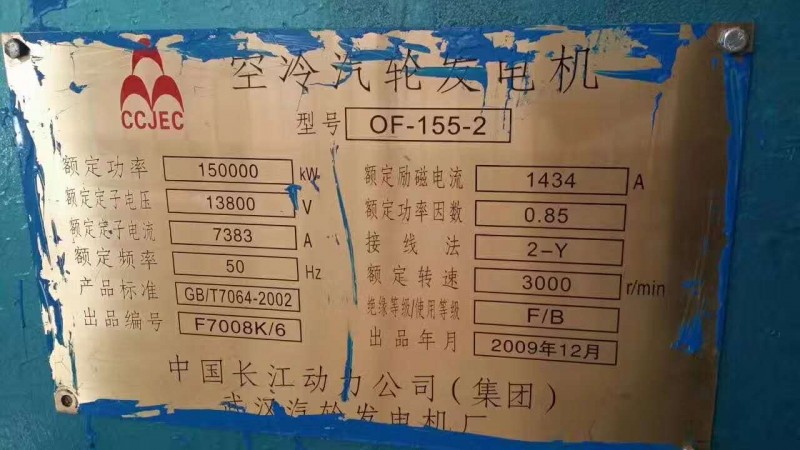 空冷汽轮发电机
CCJEC
型号 OF-155-2
额定功率 150000 kW
额定定子电压 13800 V
额定定子电流 7383 A
额定频率 50 Hz
产品标准 GB/T7064-2002
出品编号 F7008K/6
额定励磁电流 1434 A
额定功率因数 0.85
接线法 2-Y
额定转速 3000 r/min
绝缘等级/使用等级 F/B
出品年月 2009年12月
中国长江动力公司(集团)
武汉汽轮发电机厂